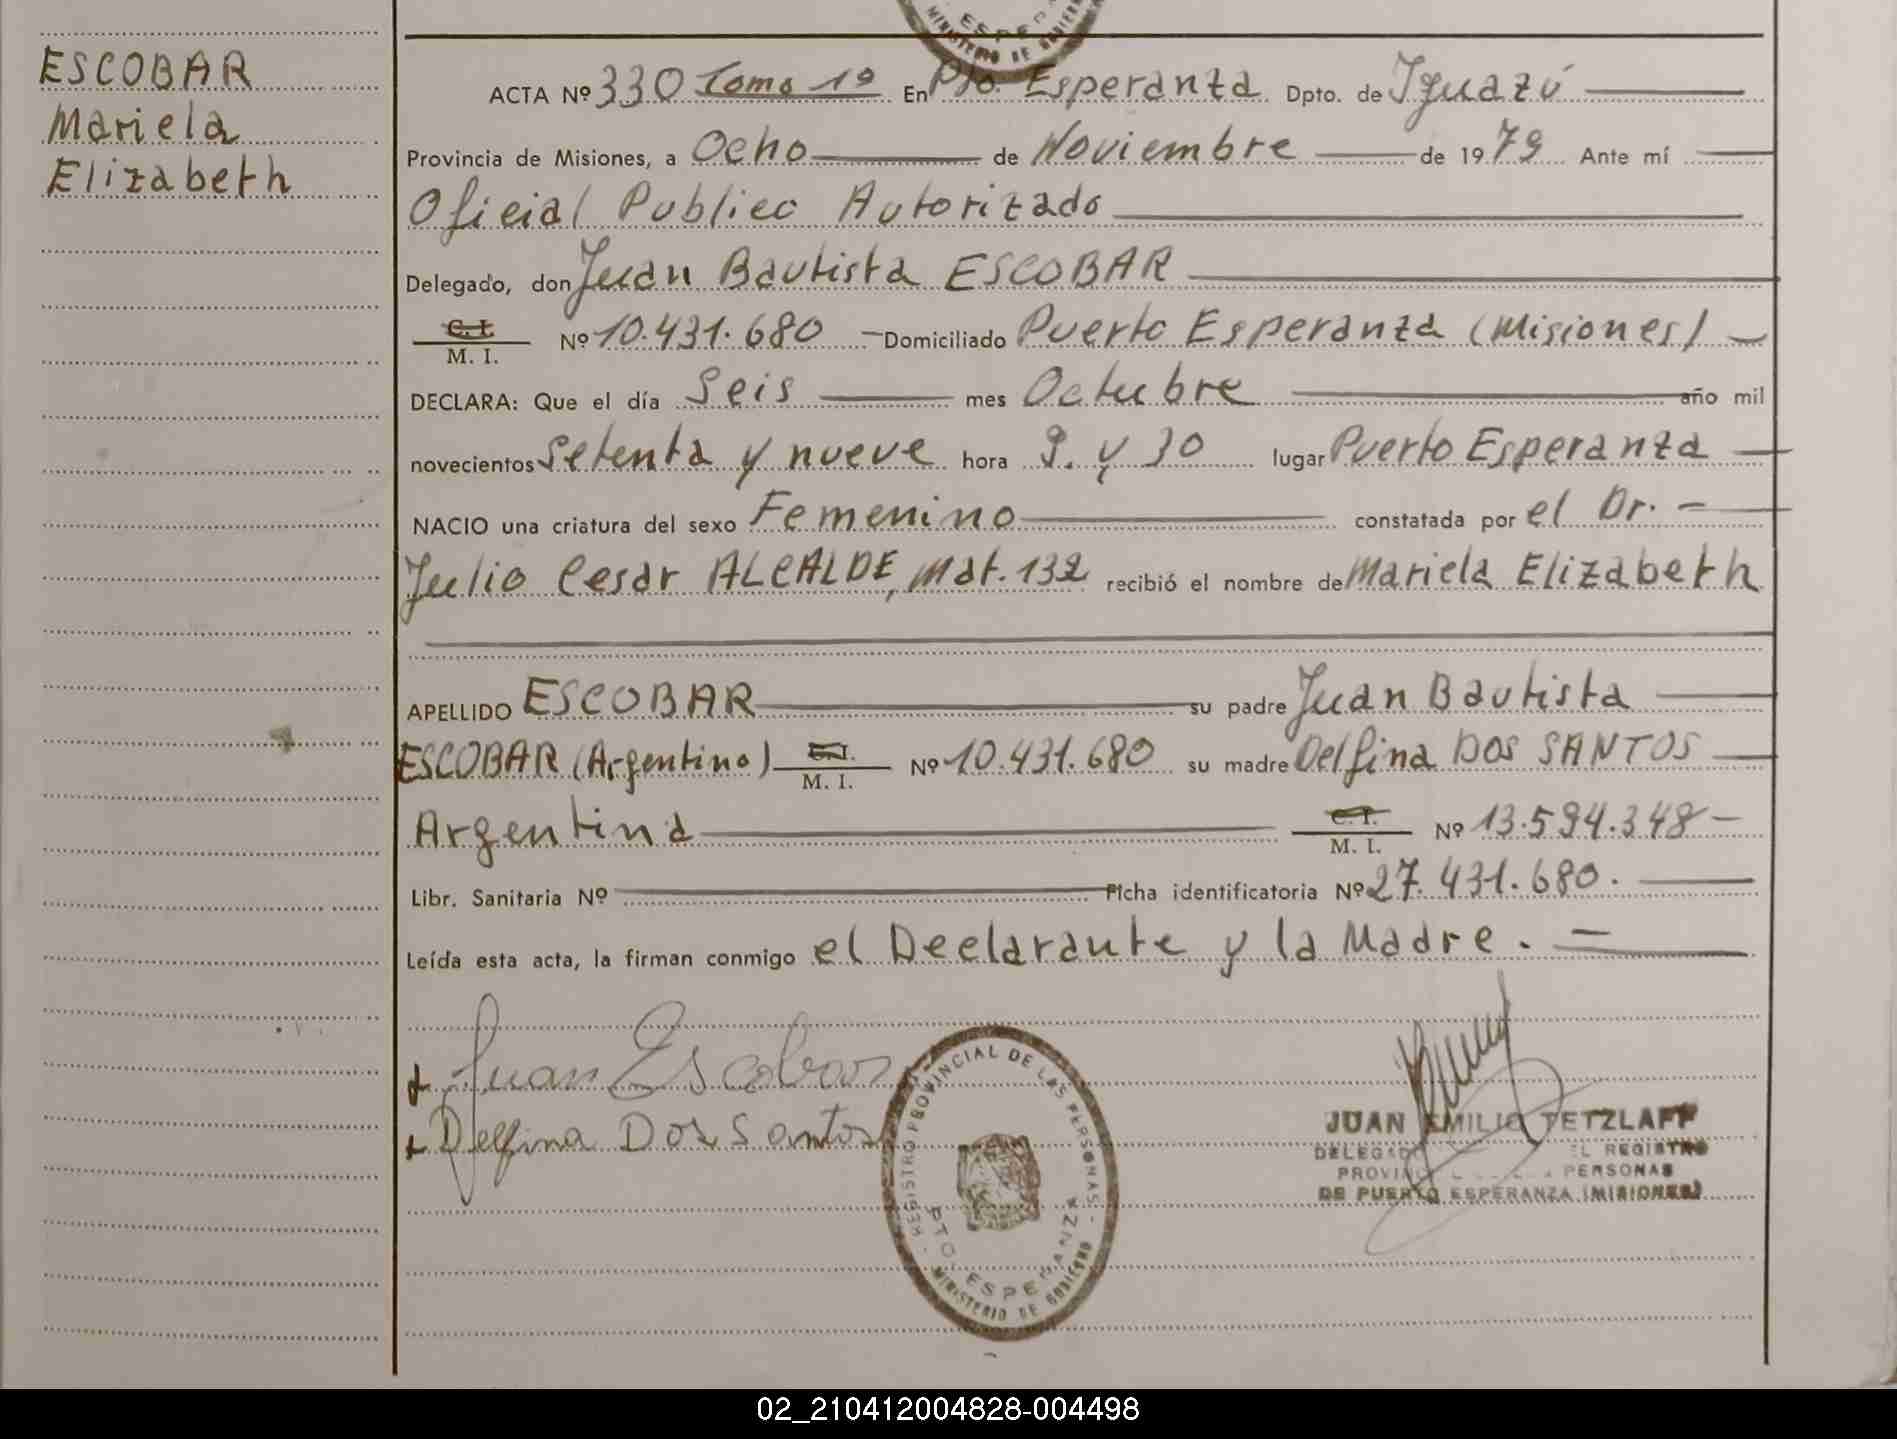 ESCOBAR
Mariela
Elizabeth
ESPERA
MINISTERIO DE GOBIERN
ACTA Nº 330 Tomo 1º En Pto. Esperanza Dpto. de Iguazú
Provincia de Misiones, a Ocho de Noviembre de 1979 Ante mí
Oficial Publico Autorizado
Delegado, don Juan Bautista ESCOBAR
C. I. M. I. Nº 10.431.680 Domiciliado Puerto Esperanza (Misiones)
DECLARA: Que el día Seis mes Octubre año mil
novecientos setenta y nueve hora 9. y 30 lugar Puerto Esperanza
NACIO una criatura del sexo Femenino constatada por el Dr.
Julio Cesar ALCALDE, Mat. 132 recibió el nombre de Mariela Elizabeth
APELLIDO ESCOBAR su padre Juan Bautista
ESCOBAR (Argentino) C. I. M. I. Nº 10.431.680 su madre Delfina DOS SANTOS
Argentina C. I. M. I. Nº 13.594.348
Libr. Sanitaria Nº Ficha identificatoria Nº 27.431.680.
Leída esta acta, la firman conmigo el Declarante y la Madre.
Juan Escobar
Delfina Dos Santos
REGISTRO PROVINCIAL DE LAS PERSONAS
PTO. ESPERANZA
MINISTERIO DE GOBIERNO
JUAN EMILIO TETZLAFF
EL REGISTRO
PERSONAS
DE PUERTO ESPERANZA (MISIONES)
02_210412004828-004498